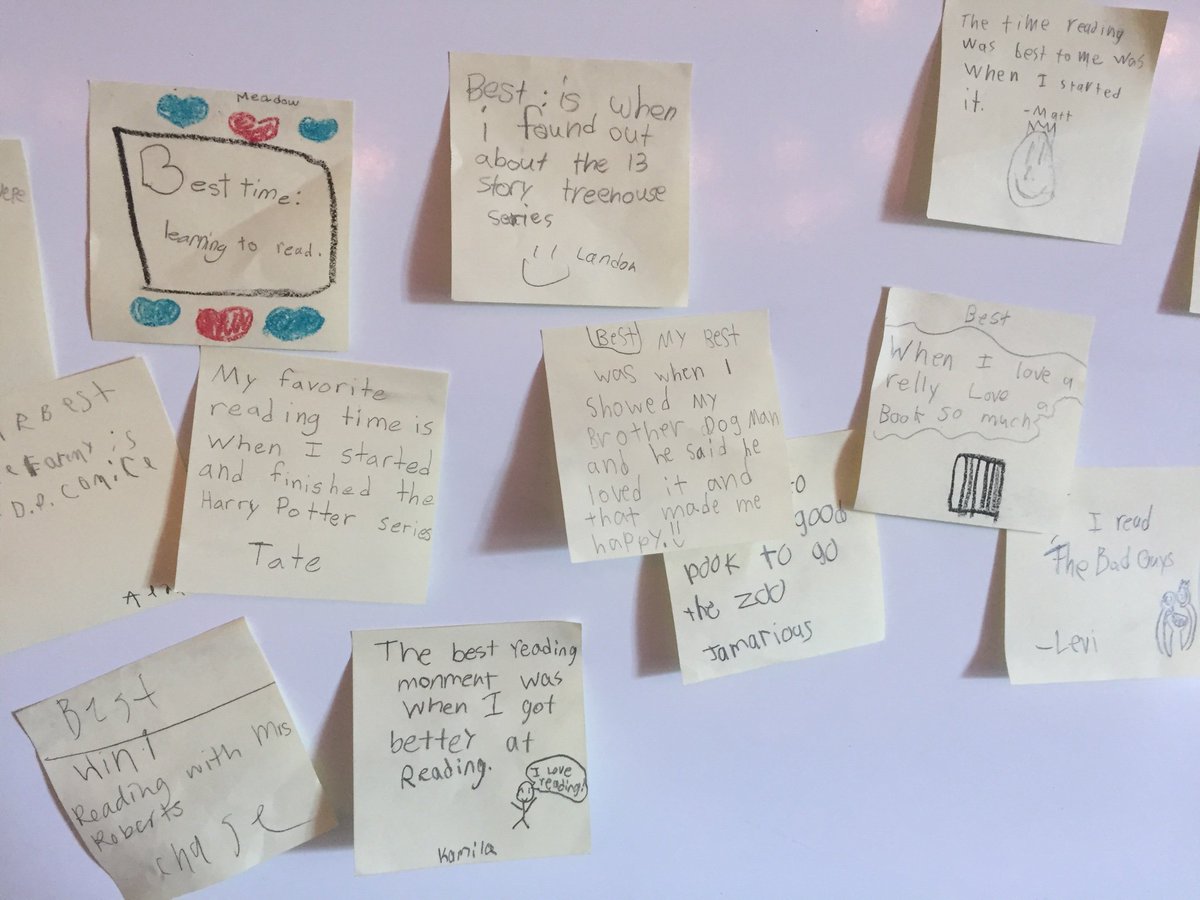 Meadow
Best time:
learning to read.
Best: is when
i found out
about the 13
story treehouse
series
Landon
The time reading
was best to me was
when I started
it.
-Matt
RBest
Farmy is
D.P. comice
My favorite
reading time is
when I started
and finished the
Harry Potter series
Tate
Best My Best
was when I
showed My
Brother Dog Man
and he said he
loved it and
that made me
happy.!!
to
good
book to go
the zoo
Jamarious
Best
When I love a
relly Love a
Book so much
I read
The Bad Guys
-Levi
Best
Reading with Mrs
Roberts
chase
The best reading
monment was
when I got
better at
Reading.
I Love
reading!
Kamila